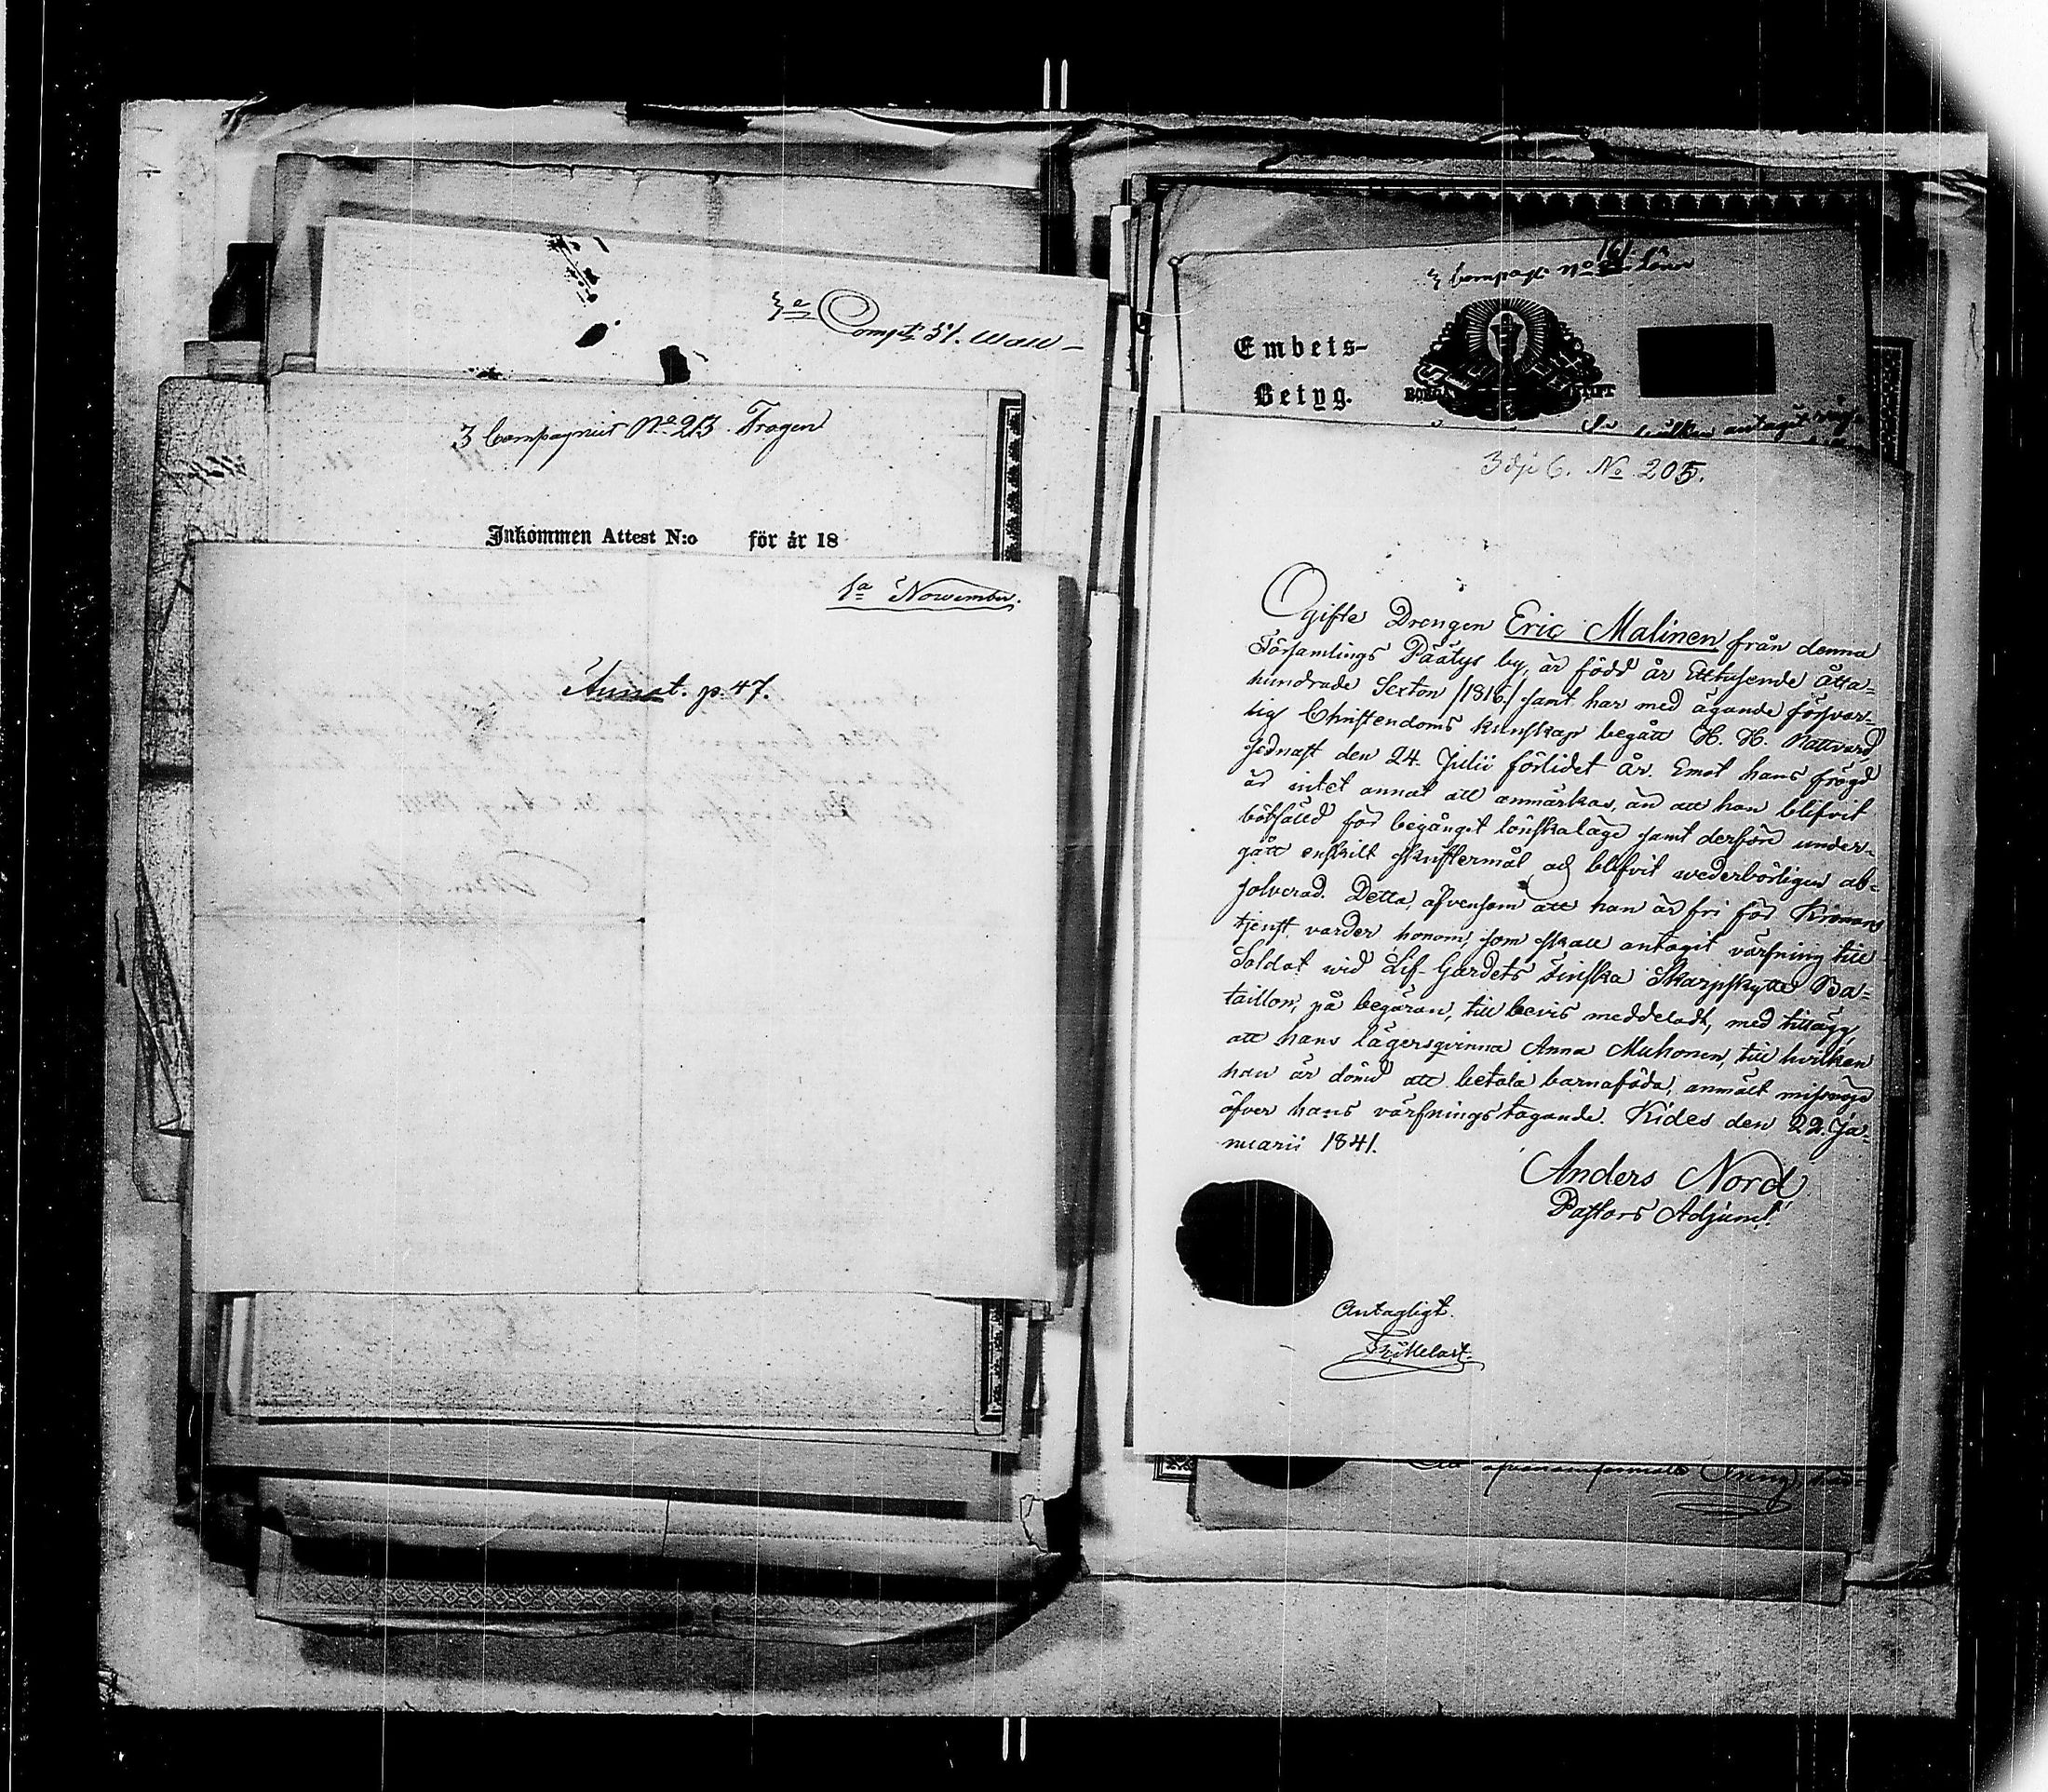 3a Comp: 31. Wall
3 Compagniet No 23. Trogen
Inkommen Attest N:o för år 18
1a November.
Annot. p. 47.
3 Compagn: No
Embets-
Betyg.
hvilken antagit
No 205.
Ogifte Drengen Eric Malinen från denna
Församlings Päätys by, är född år Ettusende åtta-
hundrade Sexton /1816/ samt har med ägande försvar-
lig Christendoms kunskap begått H. H. Nattvard,
sednast den 24. Julii förlidet år. Emot hans frägd
är intet annat att anmärkas, än att han blifvit
bötfälld för begånget lönskaläge samt derföre under-
gått enskilt skriftermål och blifvit wederbörligen ab-
solverad. Detta, äfvensom att han är fri för Kronans
tjenst varder honom, som skall antagit värfning till
Soldat wid Lif-Gardets Finska Skarpskytte Ba-
taillon, på begäran, till bevis meddeladt, med tillägg,
att hans lägersqvinna Anna Muhonen, till hvilken
han är dömd att betala barnaföda, anmält missnöje
öfver hans värfningstagande. Kides den 22. Ja-
nuarii 1841.
Anders Nord
Pastors Adjunct.
Antagligt.